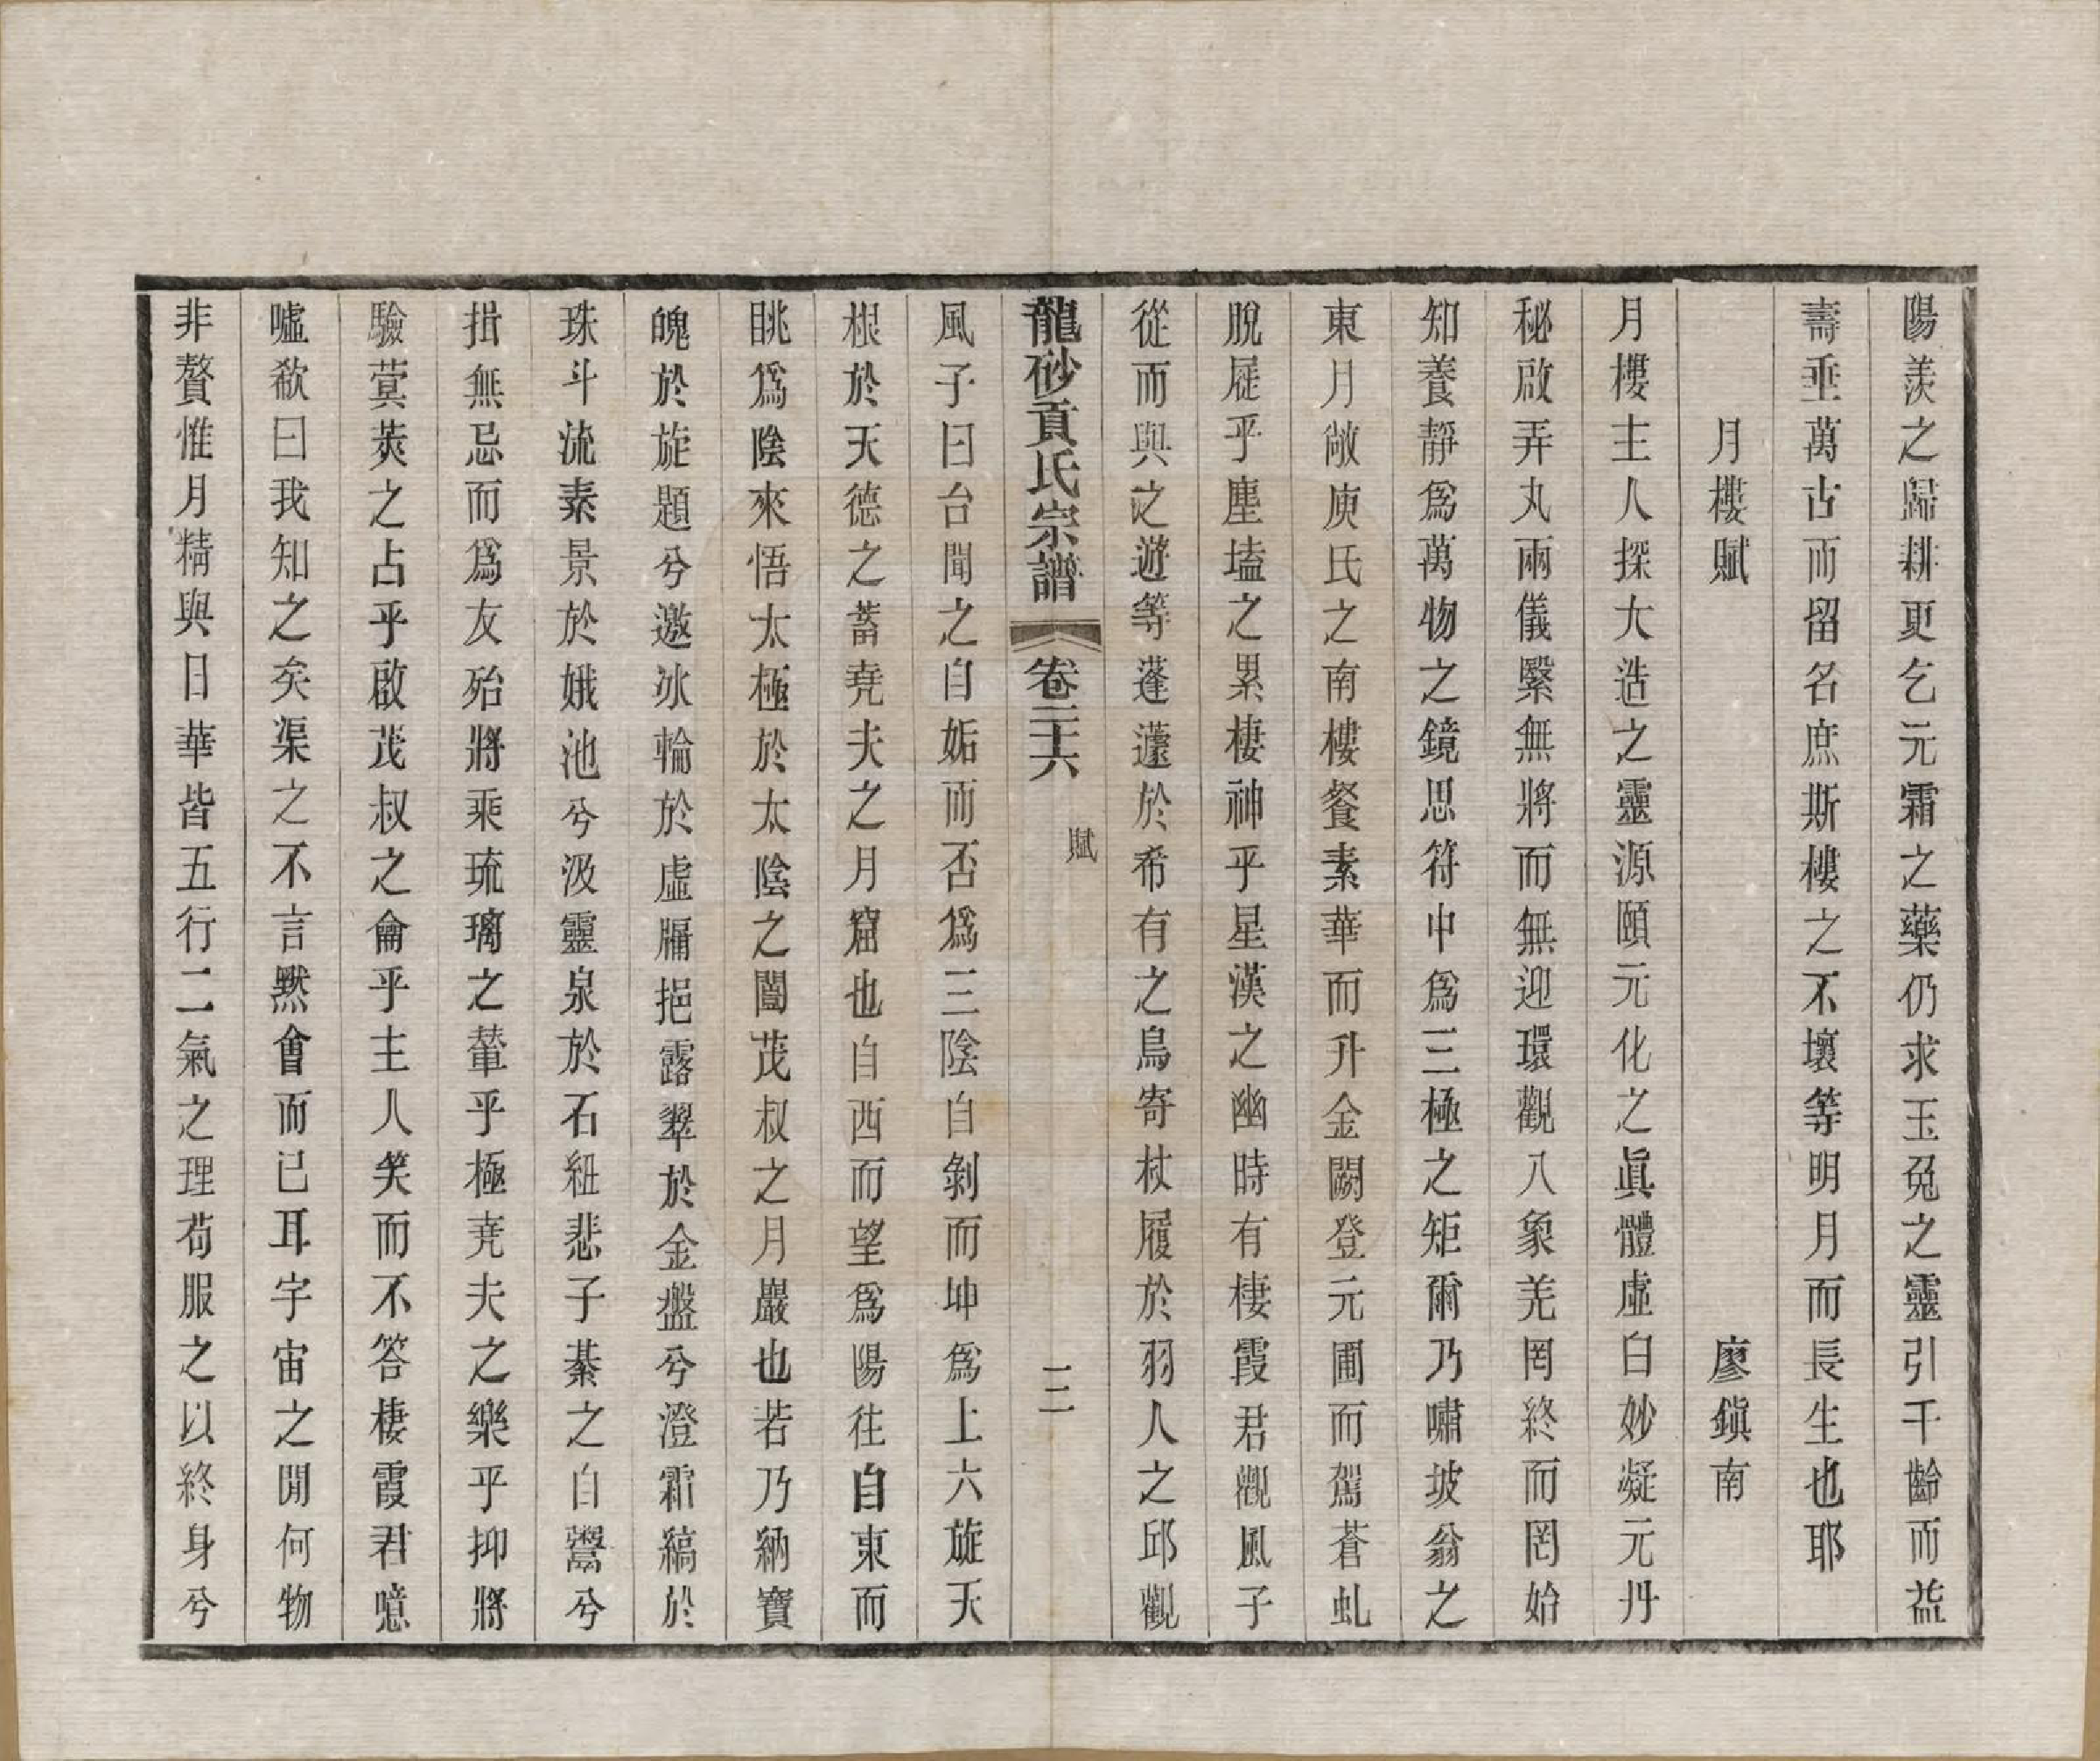 陽羨之歸耕更乞元霜之藥仍求玉兔之靈引千齡而益
壽垂萬古而留名庶斯樓之不壞等明月而長生也耶
月樓賦　廖鎮南
月樓主人探大造之靈源頤元化之眞體虛白妙凝元丹
秘啟弄丸兩儀緊無將而無迎環觀八象羌罔終而罔始
知養靜爲萬物之鏡思符中爲三極之矩爾乃嘯坡翁之
東月敞庾氏之南樓餐素華而升金闕登元圃而駕蒼虬
脫屣乎塵壒之累棲神乎星漢之幽時有棲霞君觀風子
從而與之遊等蓬蘧於希有之鳥寄杖履於羽人之邱觀
龍砂貢氏宗譜　卷二十六　賦　二
風子曰台聞之自姤而否爲三陰自剝而坤爲上六旋天
根於天德之蓄堯夫之月窟也自西而望爲陽往自東而
眺爲陰來悟太極於太陰之闔茂叔之月巖也若乃納寶
魄於旋題兮邀冰輪於虛牖挹露翠於金盤兮澄霜縞於
珠斗流素景於娥池兮汲靈泉於石紐悲子綦之自鬻兮
揖無忌而爲友殆將乘琉璃之輦乎極堯夫之樂乎抑將
驗蓂莢之占乎啟茂叔之侖乎主人笑而不答棲霞君噫
嘘欷曰我知之矣渠之不言默會而已耳宇宙之閒何物
非贅惟月精與日華皆五行二氣之理苟服之以終身兮